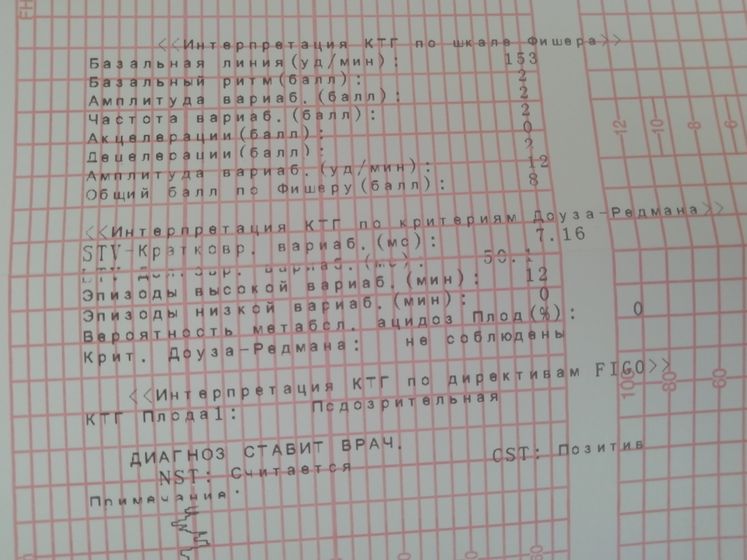 <<Интерпретация КТГ по шкале Фишера>>
Базальная линия(уд/мин): 153
Базальный ритм(балл): 2
Амплитуда вариаб.(балл): 2
Частота вариаб.(балл): 2
Акцелерации(балл): 0
Децелерации(балл): 2
Амплитуда вариаб.(уд/мин): 12
Общий балл по Фишеру(балл): 8
<<Интерпретация КТГ по критериям Доуза-Редмана>>
STV-Кратковр. вариаб.(мс): 7.16
вариаб.(мс):
Эпизоды высокой вариаб.(мин): 12
Эпизоды низкой вариаб.(мин): 0
Вероятность метабол. ацидоз Плод(%): 0
Крит. Доуза-Редмана: не соблюдены
<<Интерпретация КТГ по директивам FIGO>>
КТГ Плода1: Подозрительная
ДИАГНОЗ СТАВИТ ВРАЧ.
NST: Считается CST: Позитив
Примечание:
12
10
8
6
100
80
60